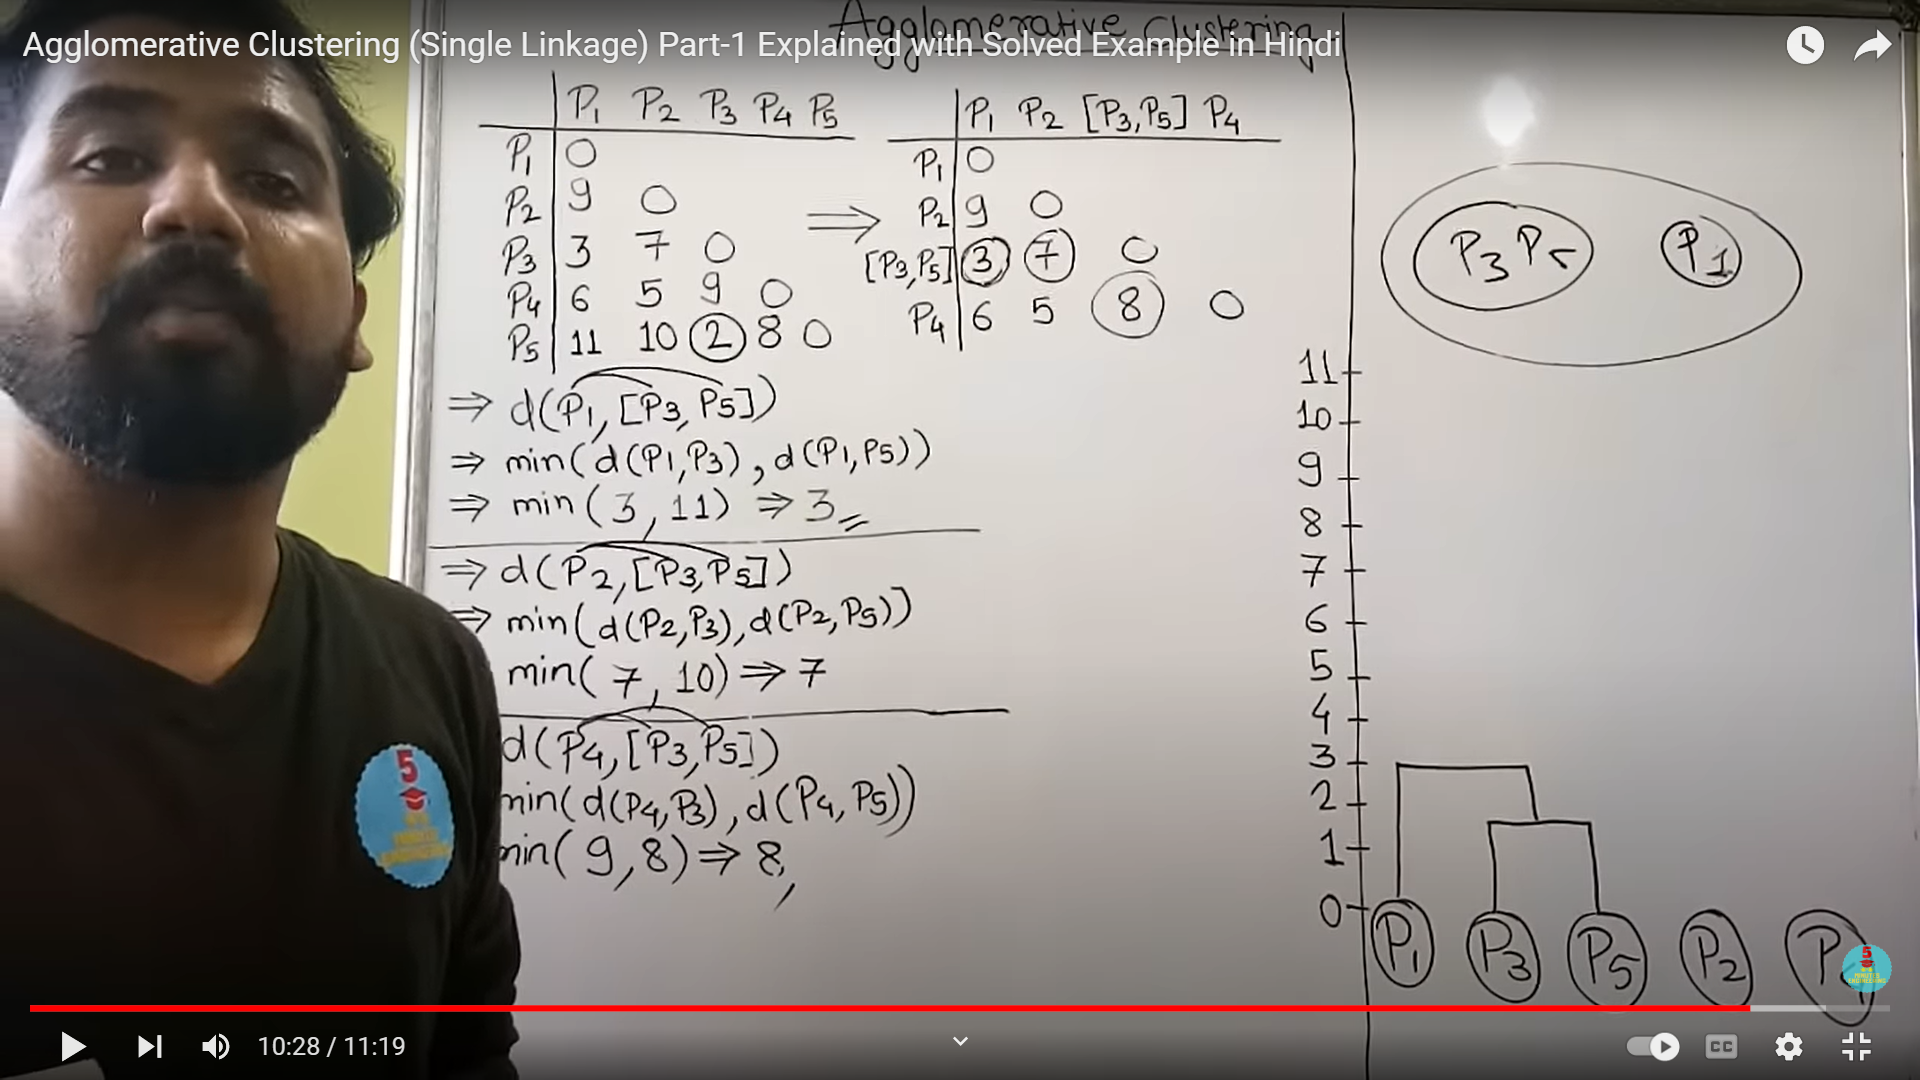 Agglomerative Clustering
Agglomerative Clustering (Single Linkage) Part-1 Explained with Solved Example in Hindi
P1 P2 P3 P4 P5
P1 0
P2 9 0
P3 3 7 0
P4 6 5 9 0
P5 11 10 2 8 0
⇒
P1 P2 [P3,P5] P4
P1 0
P2 9 0
[P3,P5] 3 7 0
P4 6 5 8 0
⇒ d(P1,[P3,P5])
⇒ min(d(P1,P3),d(P1,P5))
⇒ min(3,11) ⇒ 3
⇒ d(P2,[P3,P5])
⇒ min(d(P2,P3),d(P2,P5))
min(7,10) ⇒ 7
d(P4,[P3,P5])
min(d(P4,P3),d(P4,P5))
min(9,8) ⇒ 8,
P3 P5 P1
11
10
9
8
7
6
5
4
3
2
1
0
P1 P3 P5 P2
5
5
10:28 / 11:19
CC